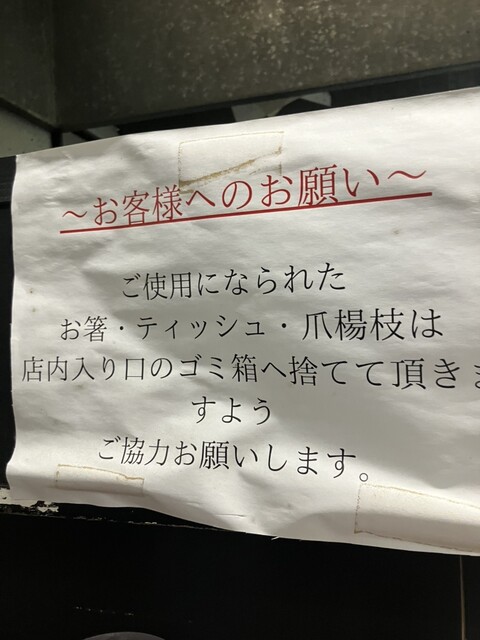 ～お客様へのお願い～
ご使用になられた
お箸・ティッシュ・爪楊枝は
店内入り口のゴミ箱へ捨てて頂きま
すよう
ご協力お願いします。